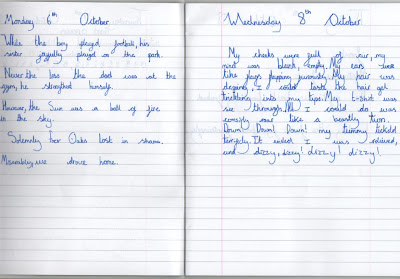 Monday 6th October
While the boy played football, his
sister joyfully played in the park.
Never the less the dad was at the
gym, he himself.
However, the Sun was a ball of fire
in the sky.
Solemnly her Oaks lost in shame.
we drove home.
Wednesday 8th October
My cheeks were full of air, my
mind was blank, empty. My ears were
like flags flapping furiously. My hair was
I could taste the hair gel
trickling into my lips. My t-shirt was
see through, All I could do was
roar like a beastly lion.
Down! Down! Down! my tummy tickled
terribly. It ended I was relieved,
and dizzy, dizzy! dizzy! dizzy!.